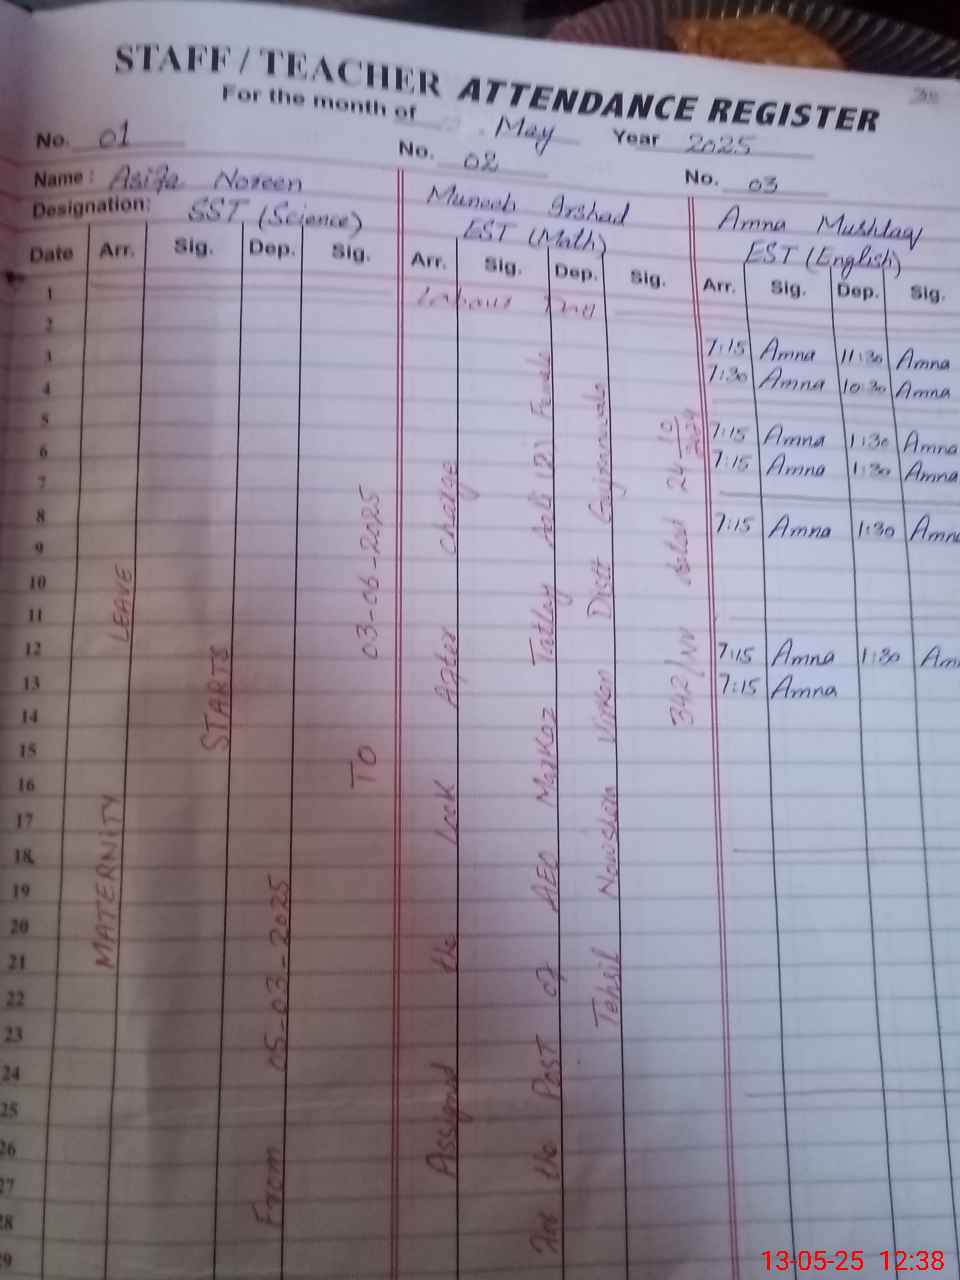 STAFF / TEACHER ATTENDANCE REGISTER
For the month of May Year 2025
No. 01 No. 02 No. 03
Name: Asifa Noreen Muneeb Irshad Amna Mushtaq
Designation: SST (Science) EST (Math) EST (English)
Date Arr. Sig. Dep. Sig. Arr. Sig. Dep. Sig. Arr. Sig. Dep. Sig.
1
2
3 7:15 Amna 11:30 Amna
4 7:30 Amna 10:30 Amna
5
6 7:15 Amna 1:30 Amna
7 7:15 Amna 1:30 Amna
8
9 7:15 Amna 1:30 Amna
10
11
12
13 7:15 Amna 1:30 Am
14 7:15 Amna
15
16
17
18
19
20
21
22
23
24
25
26
27
28
29
MATERNITY LEAVE
STARTS
From 05-03-2025
TO 03-06-2025
Assigned the Look After Charge
the Post of AEO Markaz Tatlay Aali (2) Female
Tehsil Nowshera Virkan Distt Gujranwala
342/NV dated 24 10 2024
13-05-25 12:38